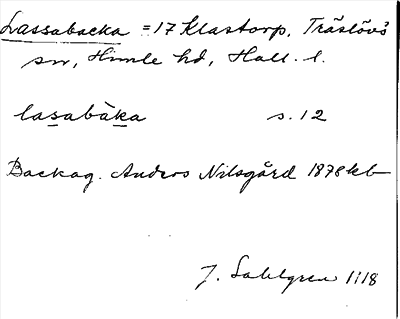 Lassabacka = 17 Klastorp, Träslövs
sn, Himle hd, Hall. l.
lasabàka s. 12
Backag. Anders Nilsgård 1878 kb
J. Sahlgren 1118